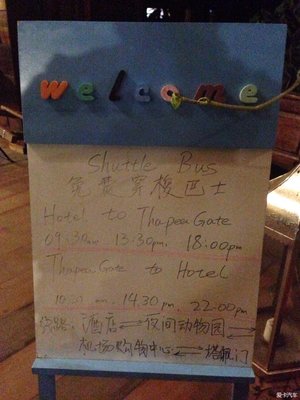 welcome
Shuttle Bus
免费穿梭巴士
Hotel to Thapea Gate
09:30am 13:30pm. 18:00pm
Thapea Gate to Hotel
10:30 am. 14.30pm. 22:00pm
线路: 酒店⇌夜间动物园⇌
机场购物中心⇌塔佩门
爱卡汽车